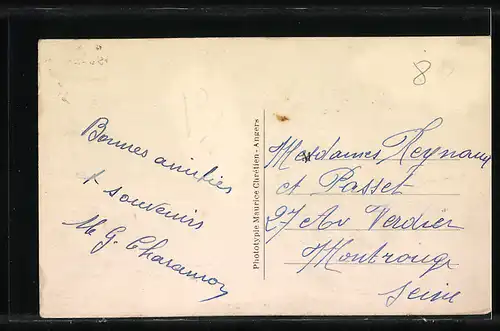 Bonnes amitiés
+ souvenirs
M G.
Phototypie Maurice Chrétien - Angers
8
Mesdames Reynaud
et Passet
27 Av Verdier
Montrouge
Seine